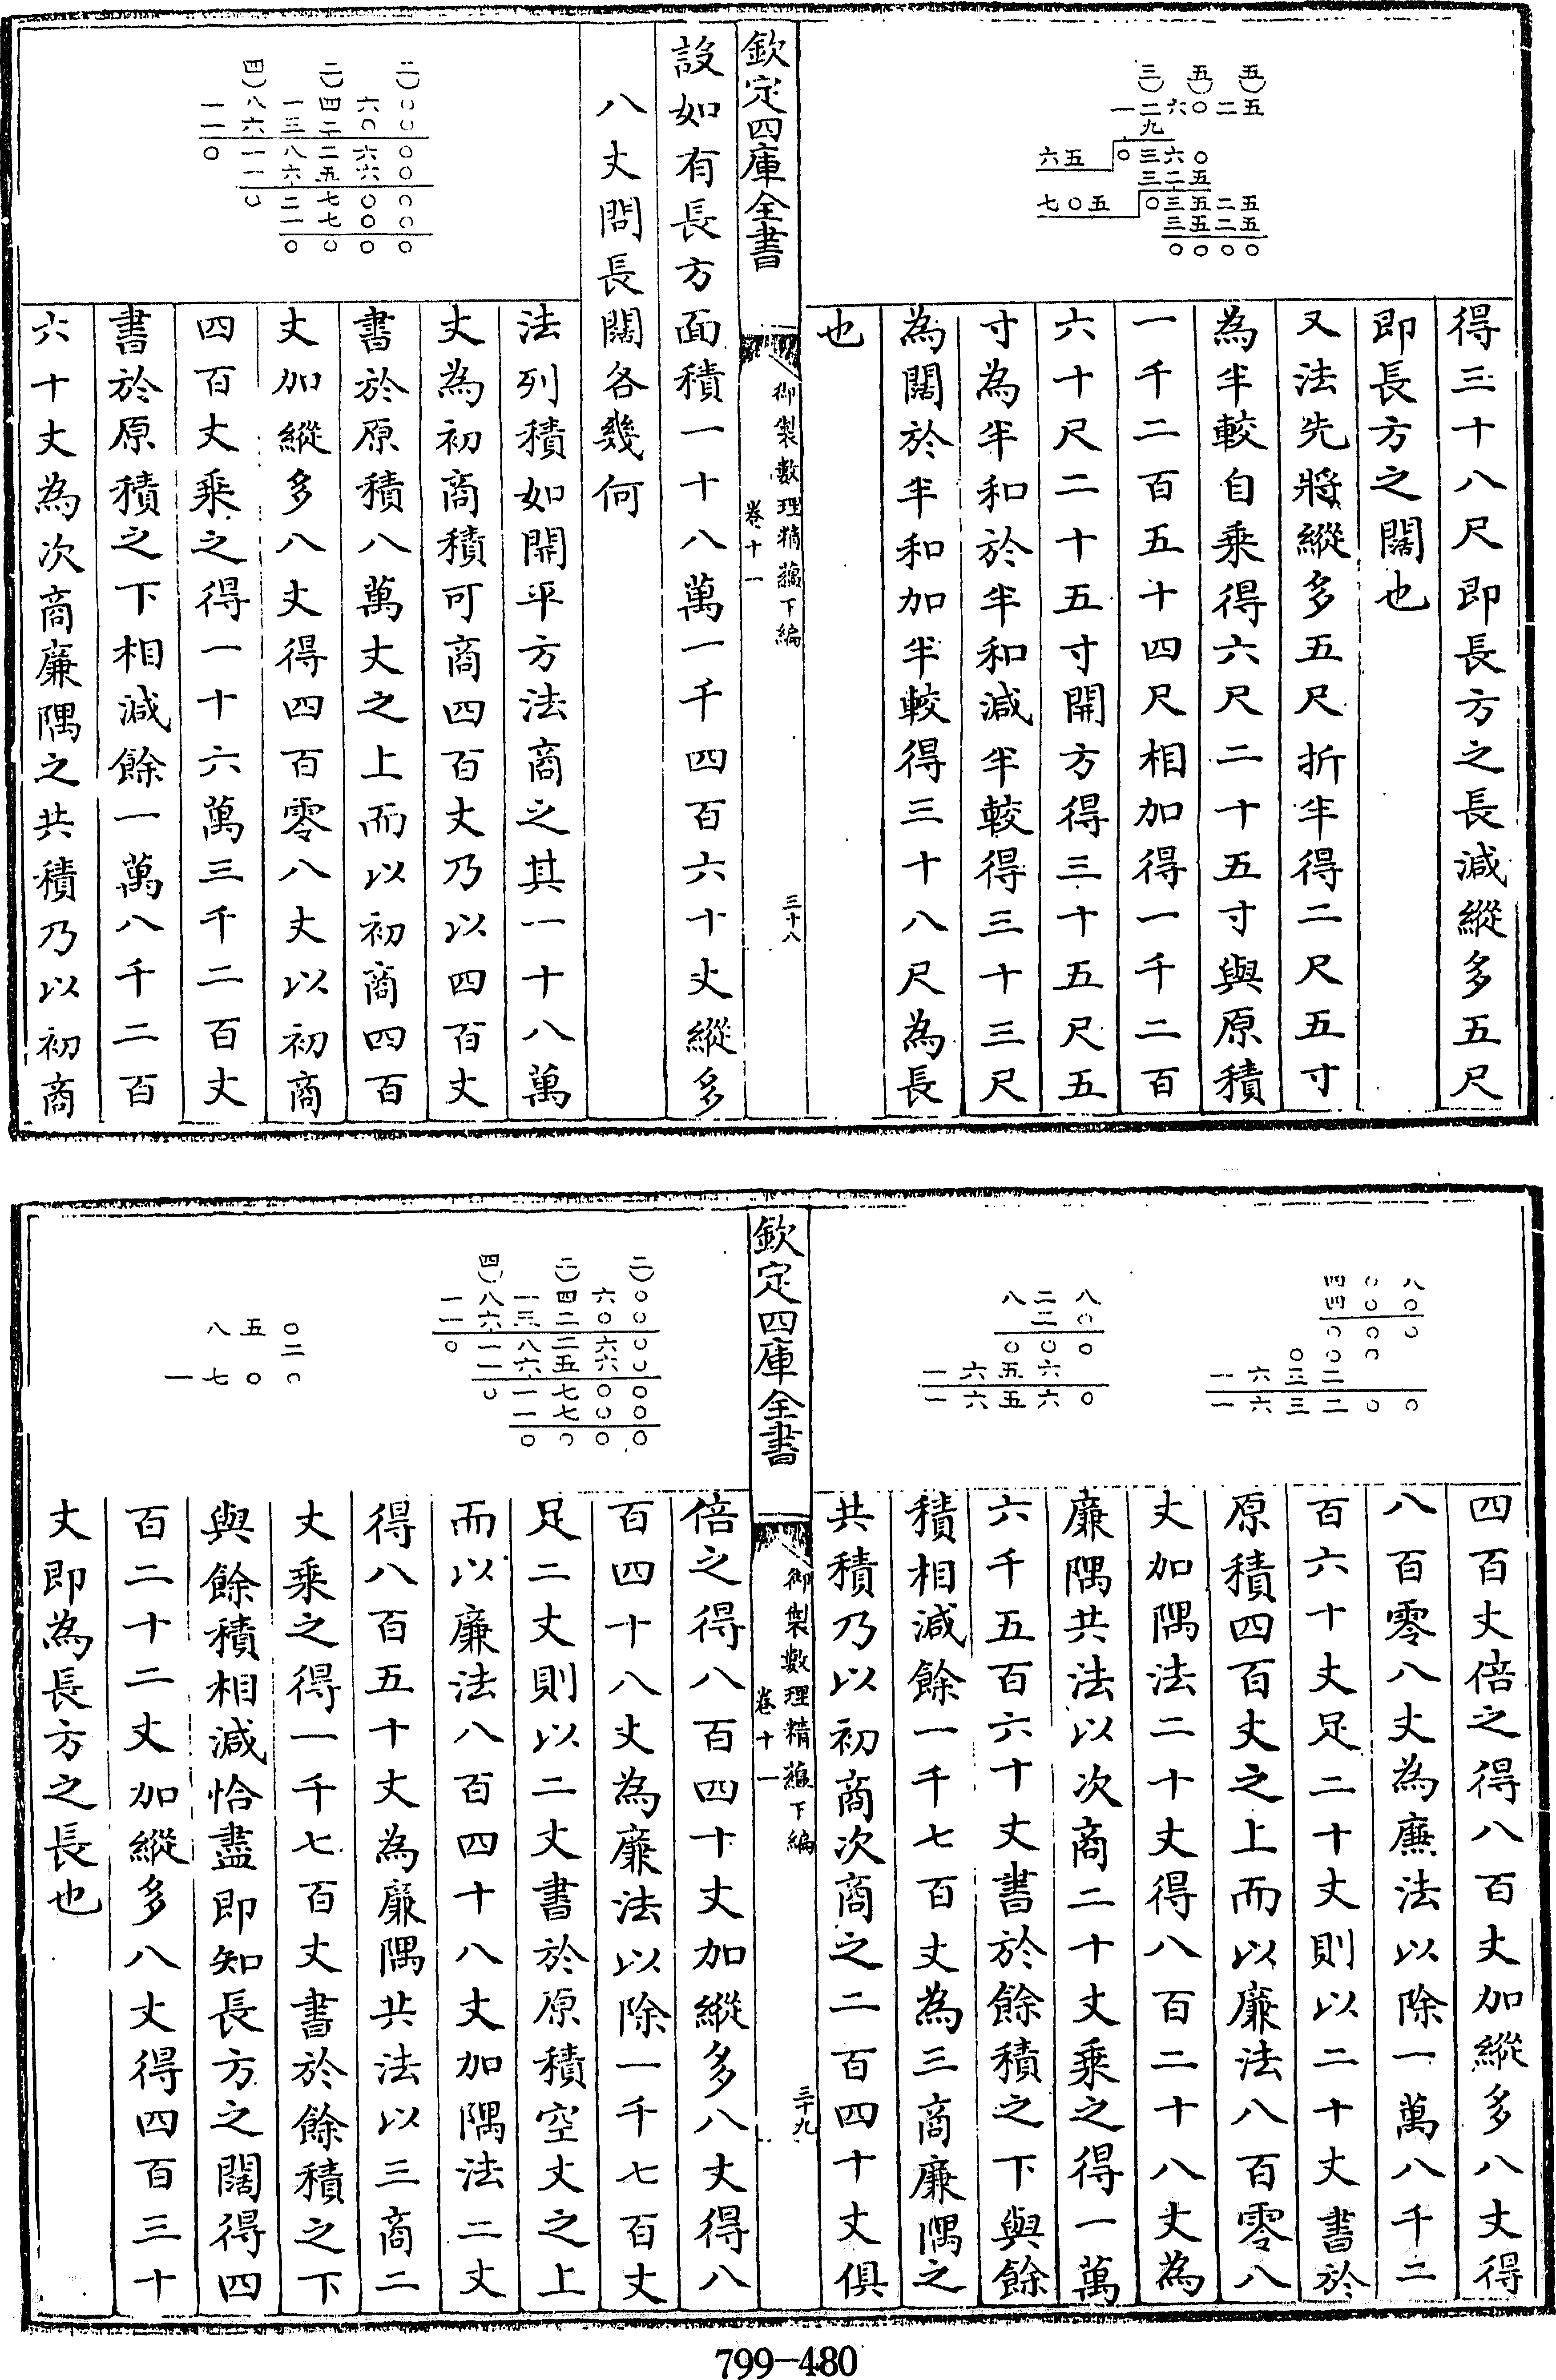 得三十八尺即長方之長減縱多五尺
即長方之闊也
又法先將縱多五尺折半得二尺五寸
為半較自乘得六尺二十五寸與原積
一千二百五十四尺相加得一千二百
六十尺二十五寸開方得三十五尺五
寸為半和於半和減半較得三十三尺
為闊於半和加半較得三十八尺為長
也
欽定四庫全書
御製數理精蘊下編
卷十一
三十八
設如有長方面積一十八萬一千四百六十丈縱多
八丈問長闊各幾何
法列積如開平方法商之其一十八萬
丈為初商積可商四百丈乃以四百丈
書於原積八萬丈之上而以初商四百
丈加縱多八丈得四百零八丈以初商
四百丈乘之得一十六萬三千二百丈
書於原積之下相減餘一萬八千二百
六十丈為次商廉隅之共積乃以初商
四百丈倍之得八百丈加縱多八丈得
八百零八丈為廉法以除一萬八千二
百六十丈足二十丈則以二十丈書於
原積四百丈之上而以廉法八百零八
丈加隅法二十丈得八百二十八丈為
廉隅共法以次商二十丈乘之得一萬
六千五百六十丈書於餘積之下與餘
積相減餘一千七百丈為三商廉隅之
共積乃以初商次商之二百四十丈俱
欽定四庫全書
御製數理精蘊下編
卷十一
三十九
倍之得八百四十丈加縱多八丈得八
百四十八丈為廉法以除一千七百丈
足二丈則以二丈書於原積空丈之上
而以廉法八百四十八丈加隅法二丈
得八百五十丈為廉隅共法以三商二
丈乘之得一千七百丈書於餘積之下
與餘積相減恰盡即知長方之闊得四
百二十二丈加縱多八丈得四百三十
丈即為長方之長也
799-480